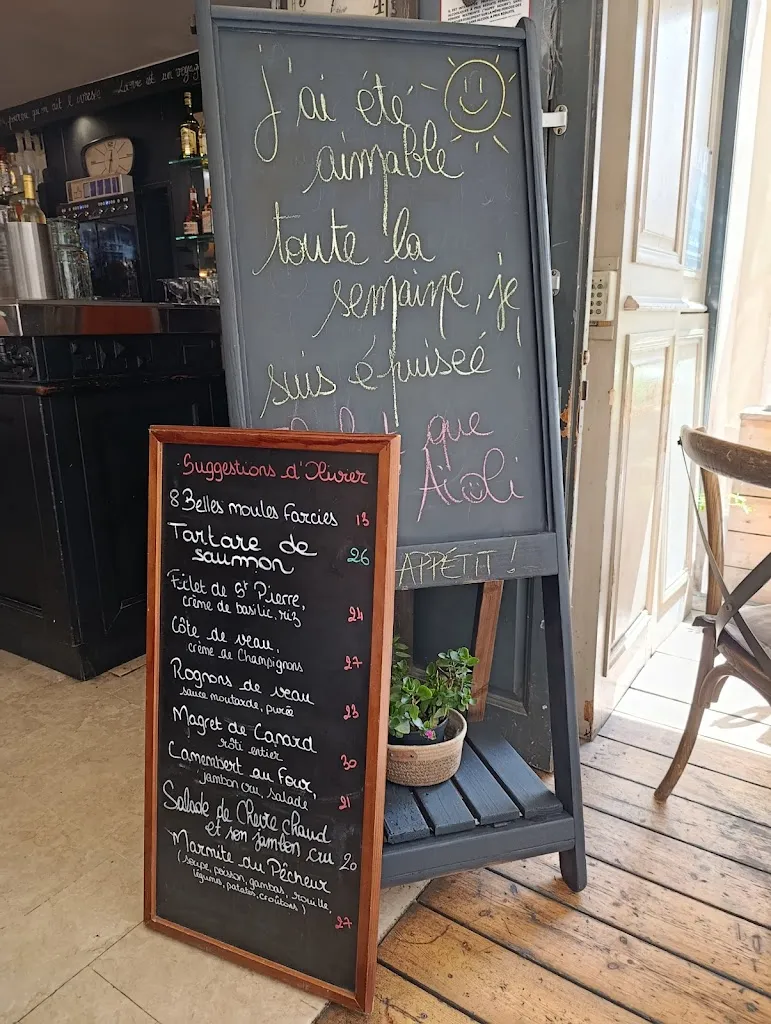 J'ai été
aimable
toute la
semaine, je
suis épuiseé !
que
Aïoli
APPÉTIT !
Suggestions d'Olivier
8 Belles moules Farcies 13
Tartare de
saumon 26
Filet de St Pierre,
crème de basilic, riz 24
Côte de veau,
crème de Champignons 27
Rognons de veau
sauce moutarde, purée 23
Magret de Canard
rôti entier 30
Camembert au Four,
jambon cru, salade 21
Salade de Chèvre chaud
et son jambon cru 20
Marmite du Pêcheur
(soupe, poisson, gambas, rouille,
légumes, patates, croûtons)
27